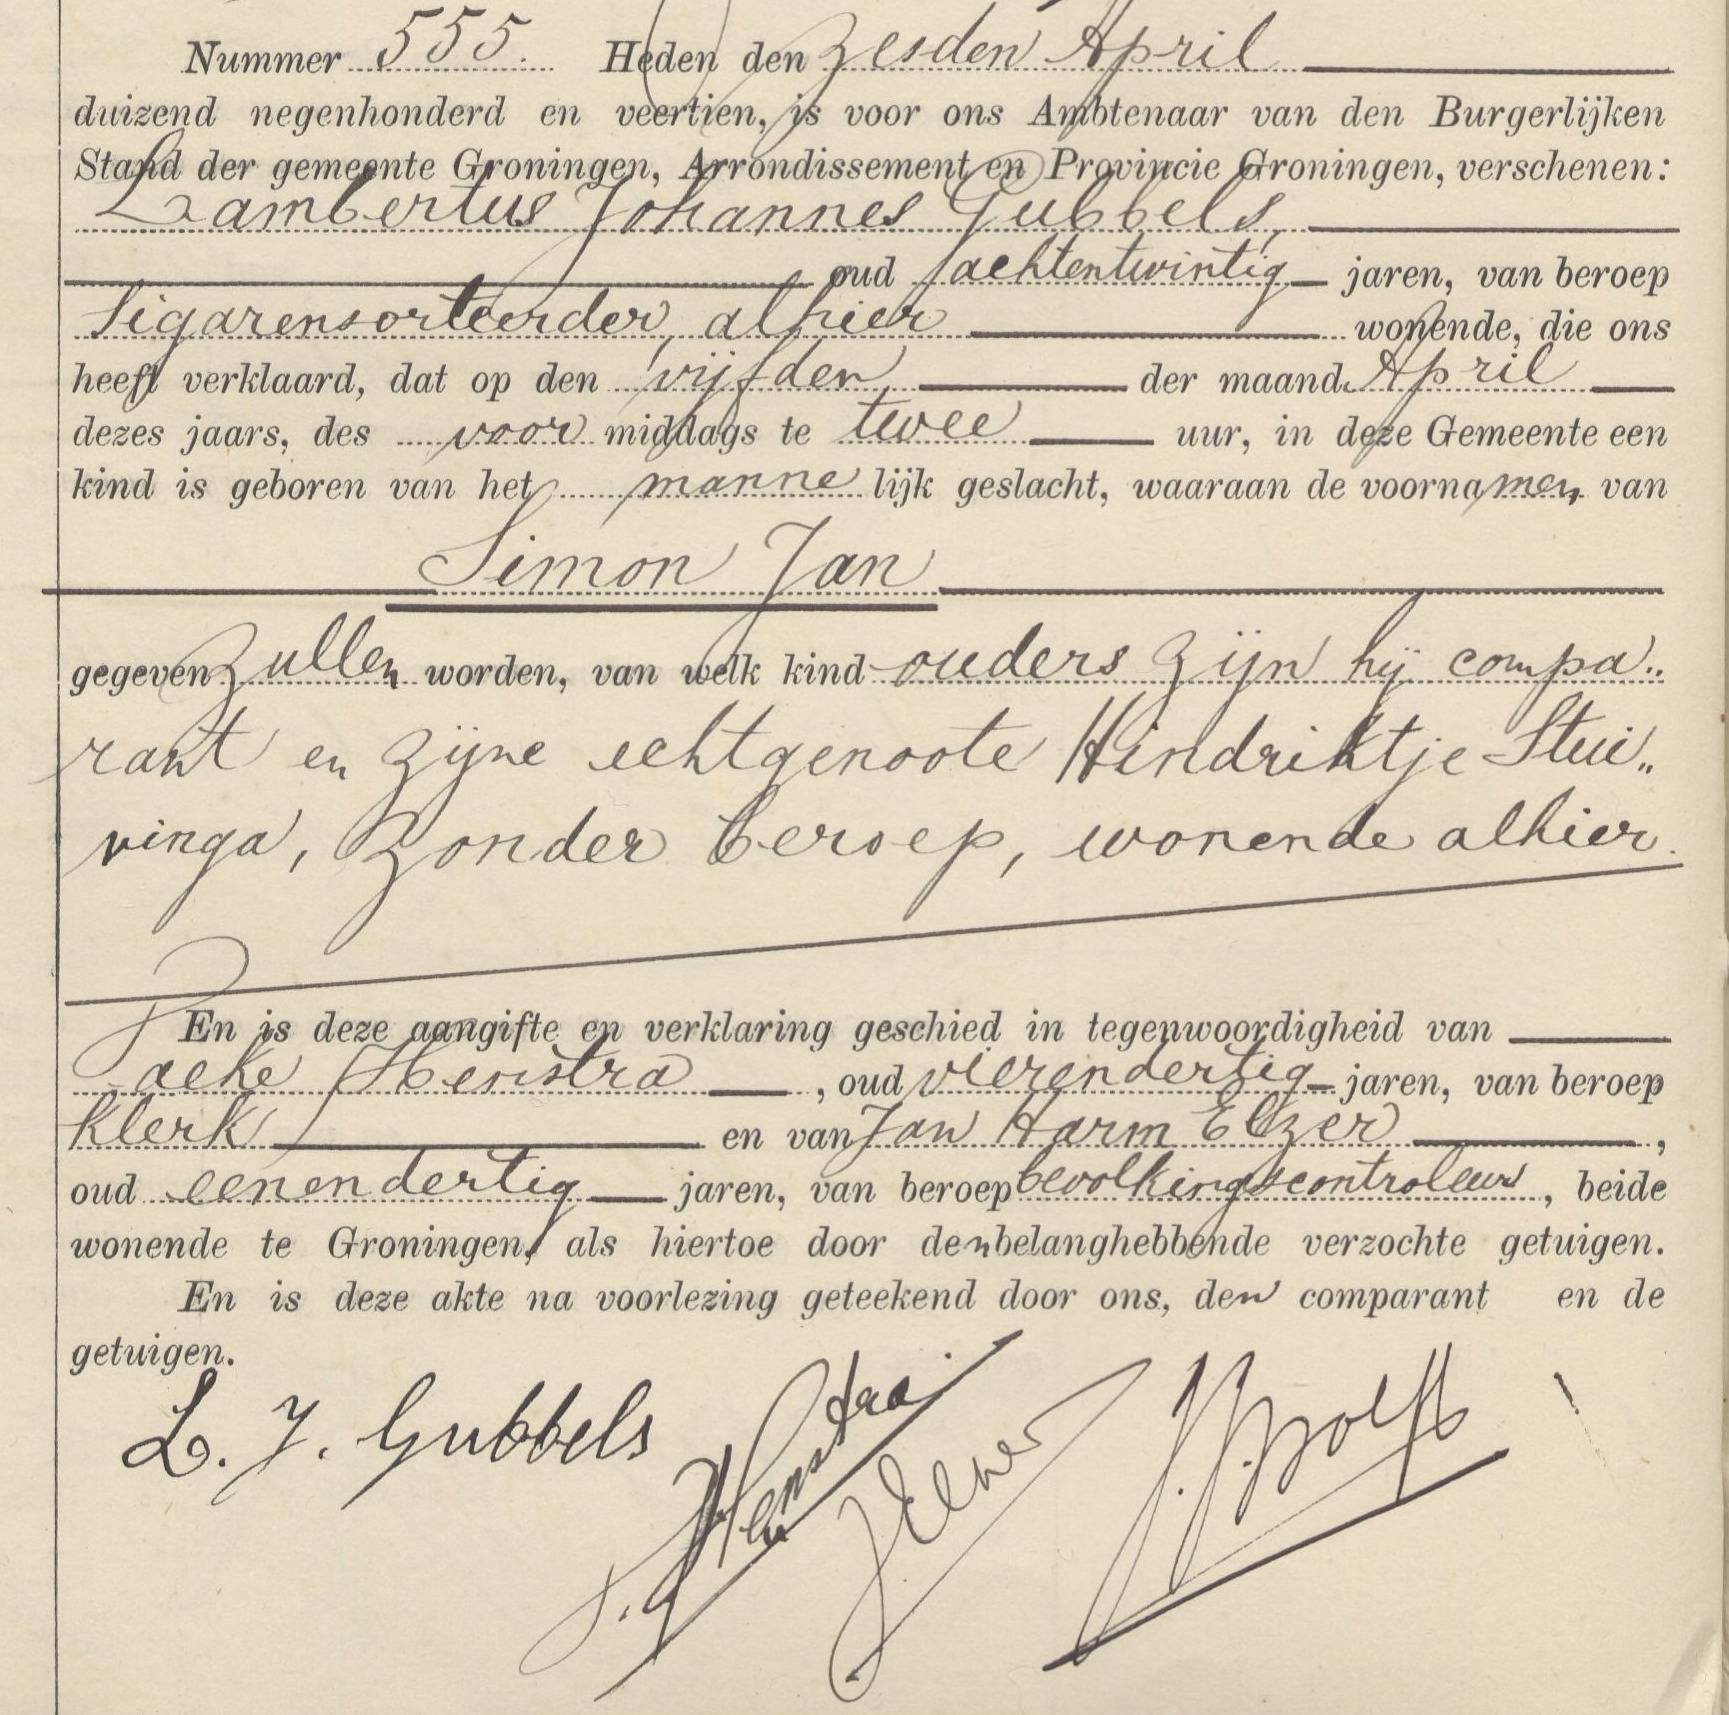 Nummer 555. Heden den zesden April
duizend negenhonderd en veertien, is voor ons Ambtenaar van den Burgerlijken
Stand der gemeente Groningen, Arrondissement en Provincie Groningen, verschenen:
Lambertus Johannes Gubbels,
oud achtentwintig jaren, van beroep
sigarensorteerder, alhier wonende, die ons
heeft verklaard, dat op den vijfden der maand April
dezes jaars, des voor middags te twee uur, in deze Gemeente een
kind is geboren van het manne lijk geslacht, waaraan de voornamen van
Simon Jan
gegeven zullen worden, van welk kind ouders zijn hij compa„
rant en zijne echtgenoote Hindriktje Stui„
vinga, zonder beroep, wonende alhier.
En is deze aangifte en verklaring geschied in tegenwoordigheid van
Paeke Henstra, oud vierendertig jaren, van beroep
klerk en van Jan Harm Elzer,
oud eenendertig jaren, van beroep bevolkingscontroleur, beide
wonende te Groningen, als hiertoe door den belanghebbende verzochte getuigen.
En is deze akte na voorlezing geteekend door ons, den comparant en de
getuigen.
L. J. Gubbels P. Henstra J. Elzer